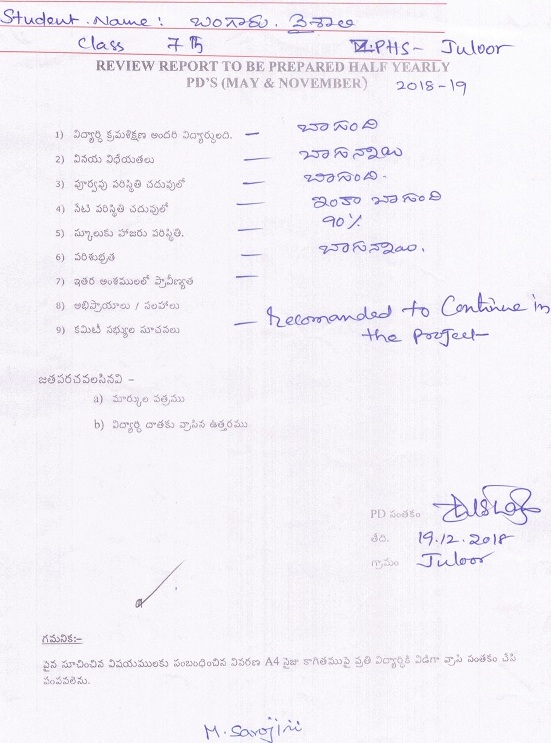 Student. Name: బంగారు. వైశాలి
Class 7th Z.PHS- Juloor
REVIEW REPORT TO BE PREPARED HALF YEARLY
PD'S (MAY & NOVEMBER) 2018-19
1) విద్యార్థి క్రమశిక్షణ అందరి విద్యార్థులది. — బాగుంది
2) వినయ విధేయతలు — బాగున్నాయి
3) పూర్వపు పరిస్థితి చదువులో — బాగుంది.
4) నేటి పరిస్థితి చదువులో — ఇంకా బాగుంది
5) స్కూలుకు హాజరు పరిస్థితి. — 90%
6) పరిశుభ్రత — బాగున్నాయి.
7) ఇతర అంశములలో ప్రావీణ్యత —
8) అభిప్రాయాలు / సలహాలు
9) కమిటీ సభ్యుల సూచనలు — Recomanded to Continue in
the Project-
జతపరచవలసినవి –
a) మార్కుల పత్రము
b) విద్యార్థి దాతకు వ్రాసిన ఉత్తరము
PD సంతకం
తేది. 19.12.2018
గ్రామం Juloor
గమనిక:-
పైన సూచించిన విషయములకు సంబంధించిన వివరణ A4 సైజు కాగితముపై ప్రతి విద్యార్థికి విడిగా వ్రాసి సంతకం చేసి
పంపవలెను.
M. Sarojini